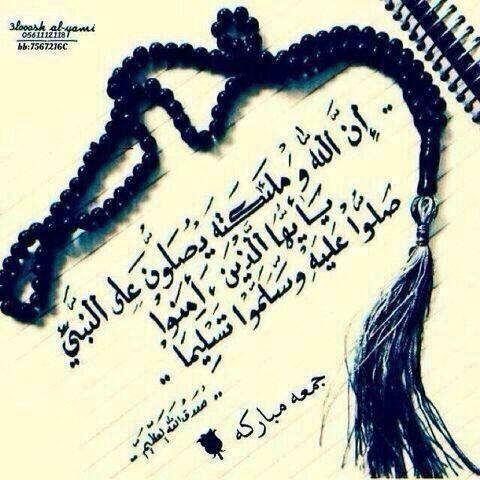 3looosh al-yami
0561112118
bb:7567216C
إِنَّ اللَّهَ وَمَلَٰئِكَتَهُ يُصَلُّونَ عَلَى النَّبِيِّ
يَا أَيُّهَا الَّذِينَ ءَامَنُوا
صَلُّوا عَلَيْهِ وَسَلِّمُوا تَسْلِيمًا
صدق الله العظيم
جمعه مباركه